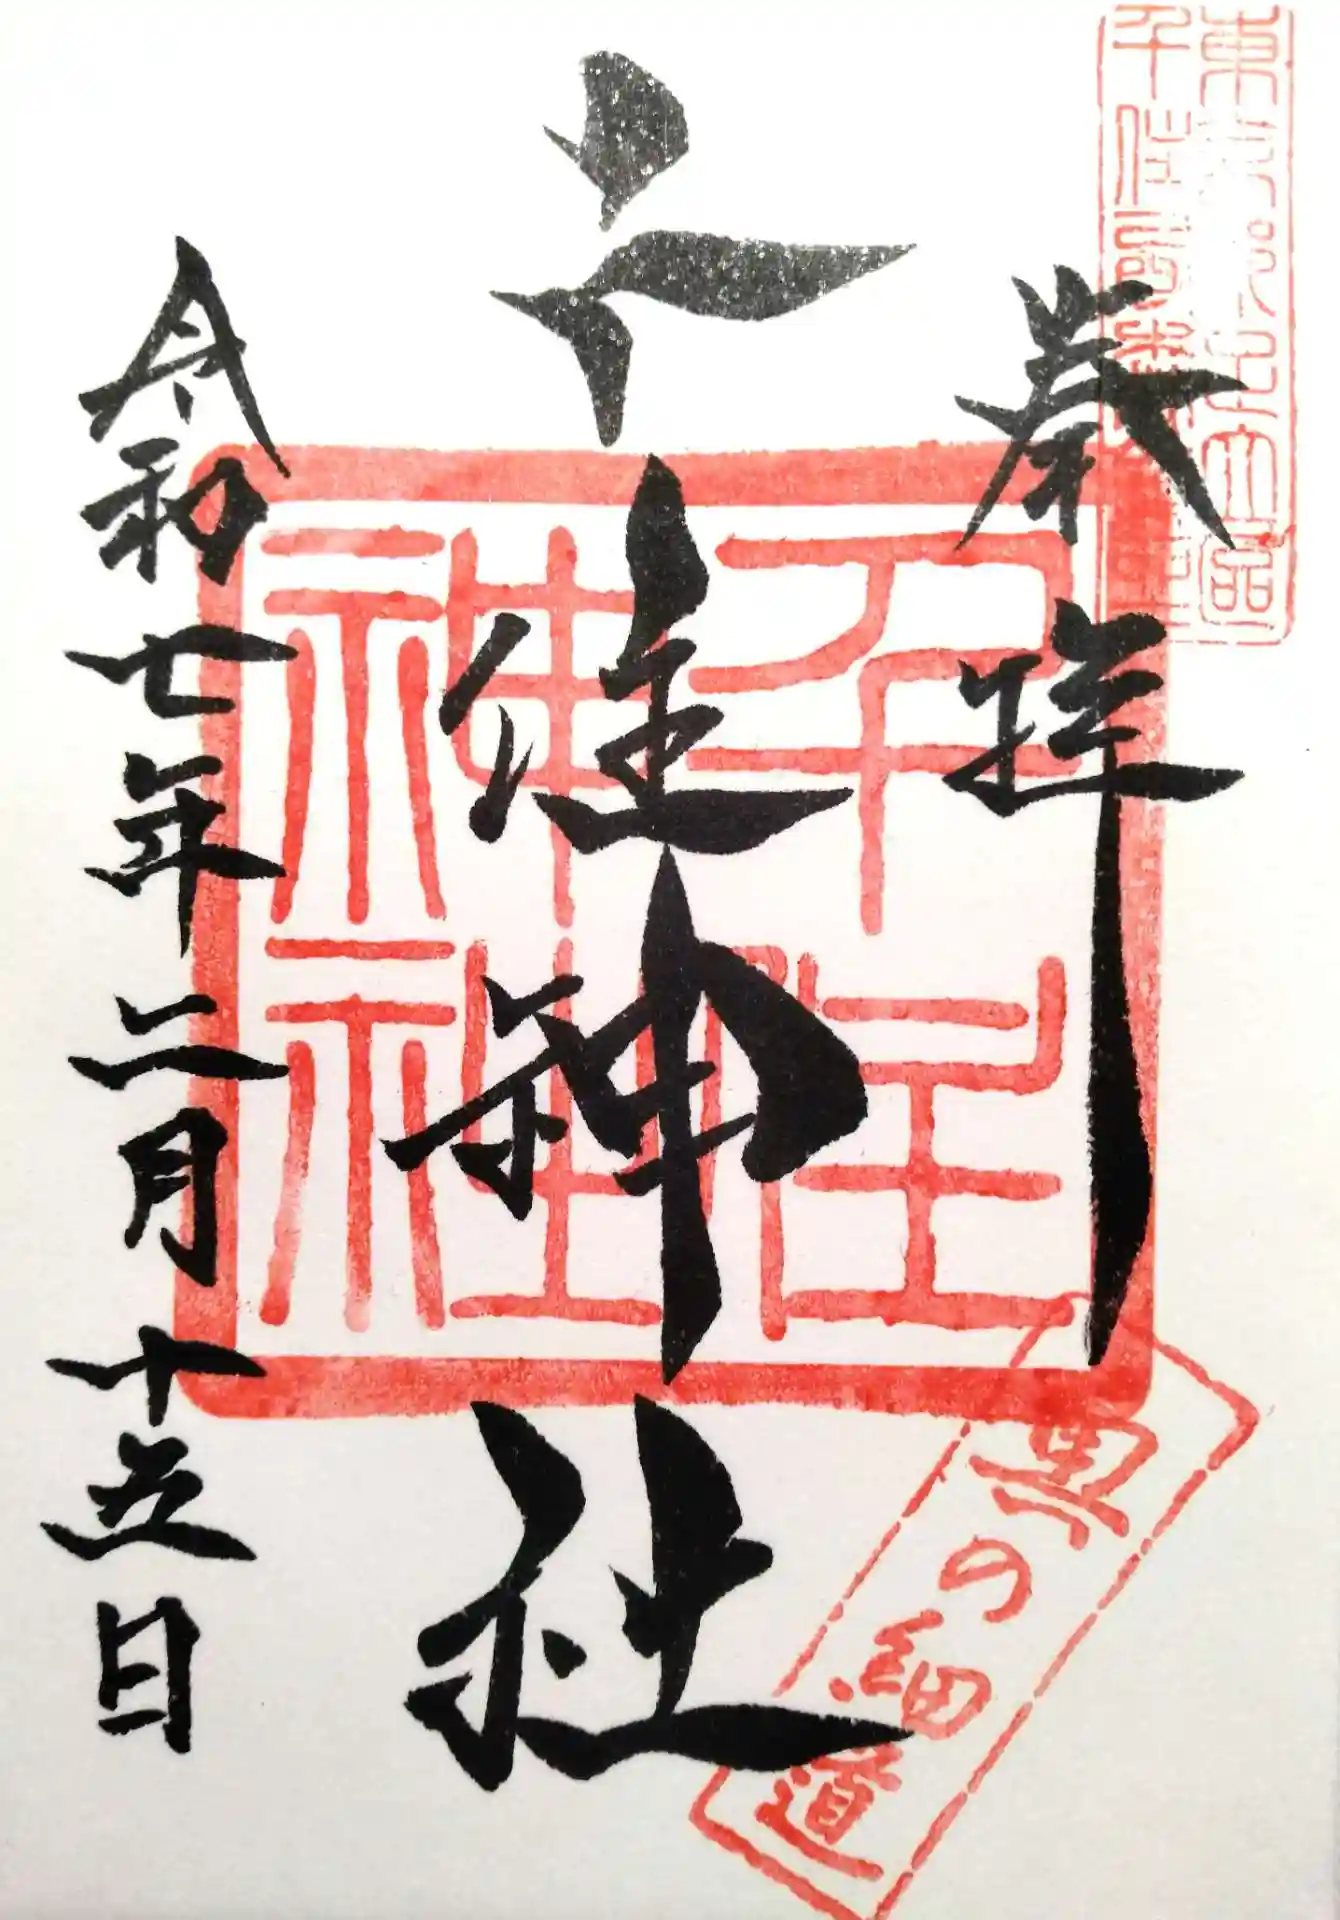 東京都足立区
千住
奉拝
千住
神社
千住神社
奥の細道
令和七年二月十五日